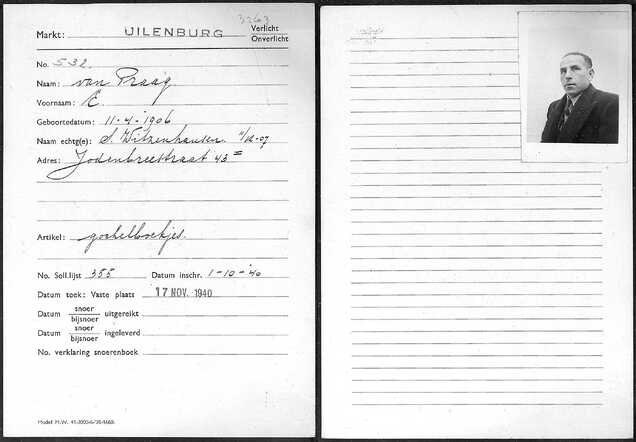 3263
Markt: UILENBURG Verlicht
Onverlicht
No. 532.
Naam: van Praag
Voornaam: E.
Geboortedatum: 11-4-1906
Naam echtg(e): S. Witzenhausen 4/12-07
Adres: Jodenbreestraat 43 =
Artikel: goochelboekjes.
No. Soll.lijst 355 Datum inschr. 1-10-'40
Datum toek: Vaste plaats 17 NOV. 1940
Datum snoer
bijsnoer uitgereikt
Datum snoer
bijsnoer ingeleverd
No. verklaring snoerenboek